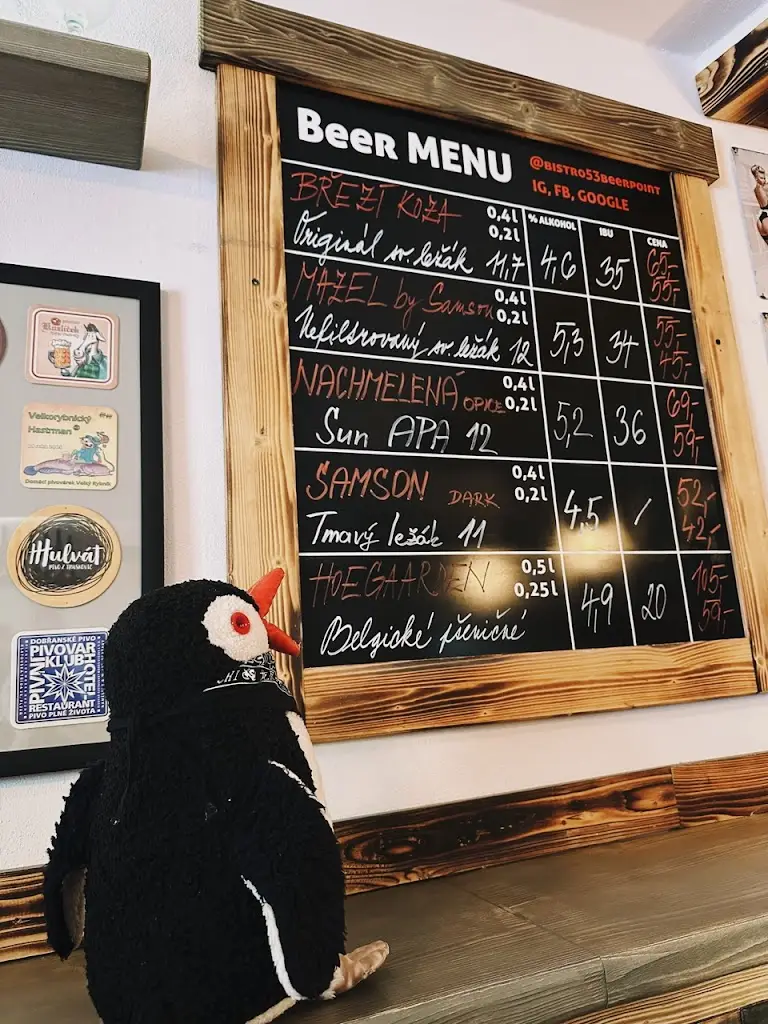 Beer MENU
@BISTRO53BEERPOINT
IG, FB, GOOGLE
% ALKOHOL IBU CENA
BŘEZÍ KOZA 0,4l 0,2l
Originál sv. ležák 11,7 4,6 35 65,- 55,-
MAZEL by Samson 0,4l 0,2l
Nefiltrovaný sv. ležák 12 5,3 34 55,- 45,-
NACHMELENÁ OPICE 0,4l 0,2l
Sun APA 12 5,2 36 69,- 59,-
SAMSON DARK 0,4l 0,2l
Tmavý ležák 11 4,5 / 52,- 42,-
HOEGAARDEN 0,5l 0,25l
Belgické pšeničné 4,9 20 105,- 59,-
Velkorybnický
Hastrman
Domácí pivovárek Velký Rybník
Hulvát
DOBŘANSKÉ PIVO
PIVOVAR
PIVNÍ
KLUB
HOTEL
RESTAURANT
PIVO PLNÉ ŽIVOTA